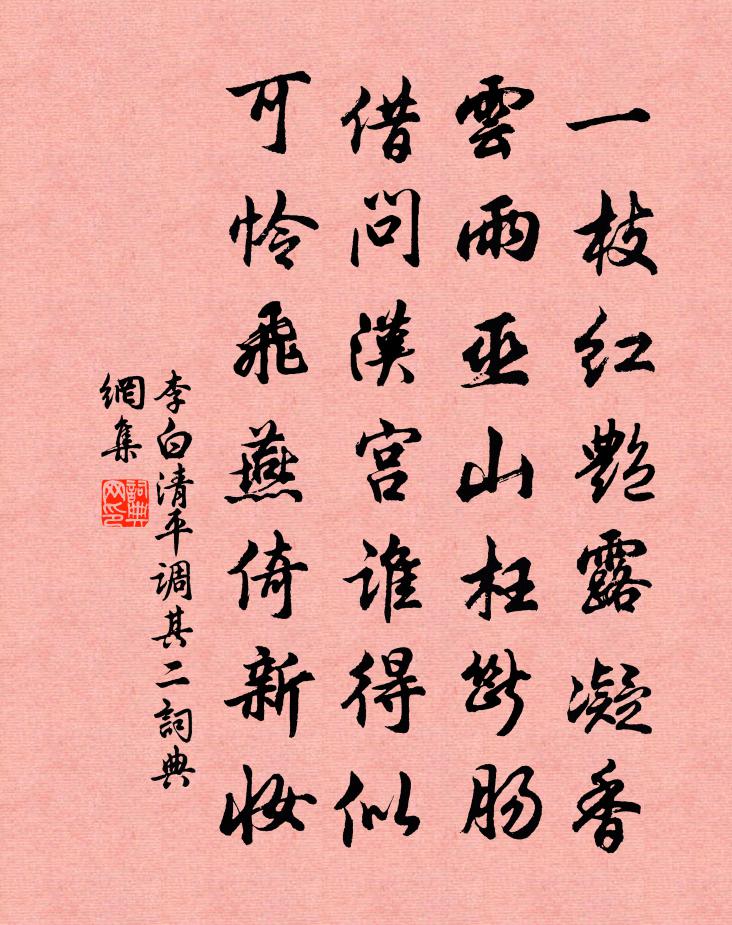 一枝红艷露凝香
雲雨巫山枉斷肠
借问漢宫谁得似
可怜飛燕倚新妆
李白清平调其二詞典
網集
詞典网印